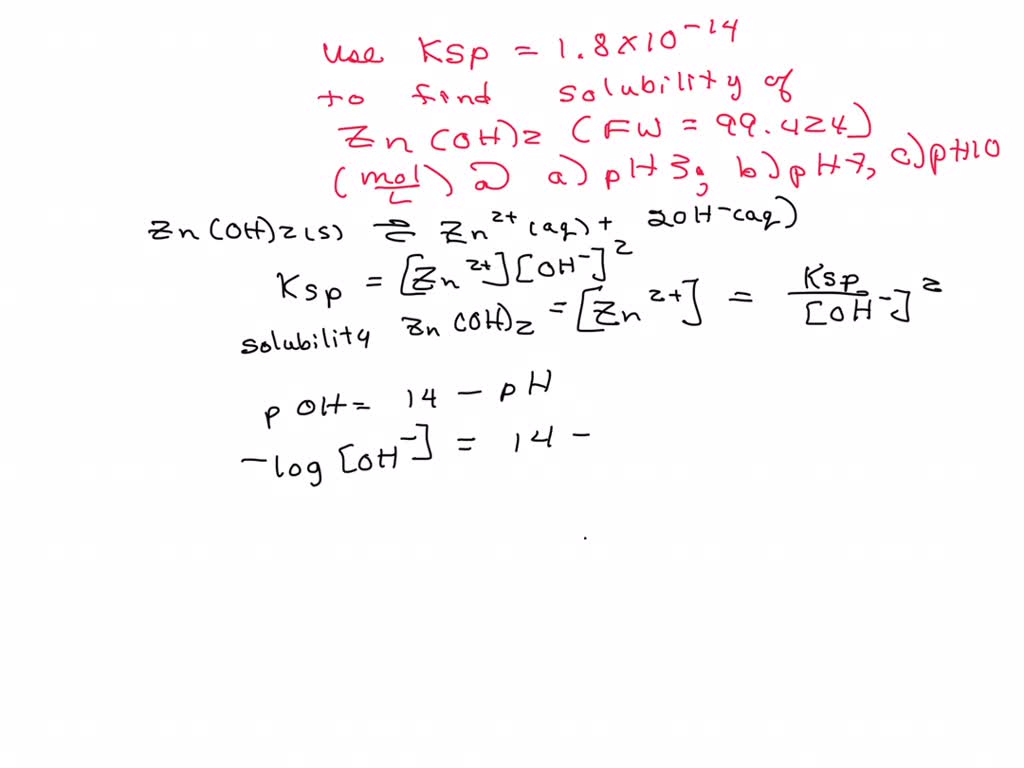 use Ksp = 1.8×10⁻¹⁴
to find solubility of
Zn(OH)2 (FW = 99.424)
(mol/L) @ a) pH 3; b) pH 7, c) pH 10
Zn(OH)2(s) ⇌ Zn²⁺(aq) + 2OH⁻(aq)
Ksp = [Zn²⁺][OH⁻]²
solubility Zn(OH)2 = [Zn²⁺] = Ksp/[OH⁻]²
pOH = 14 - pH
-log[OH⁻] = 14 -